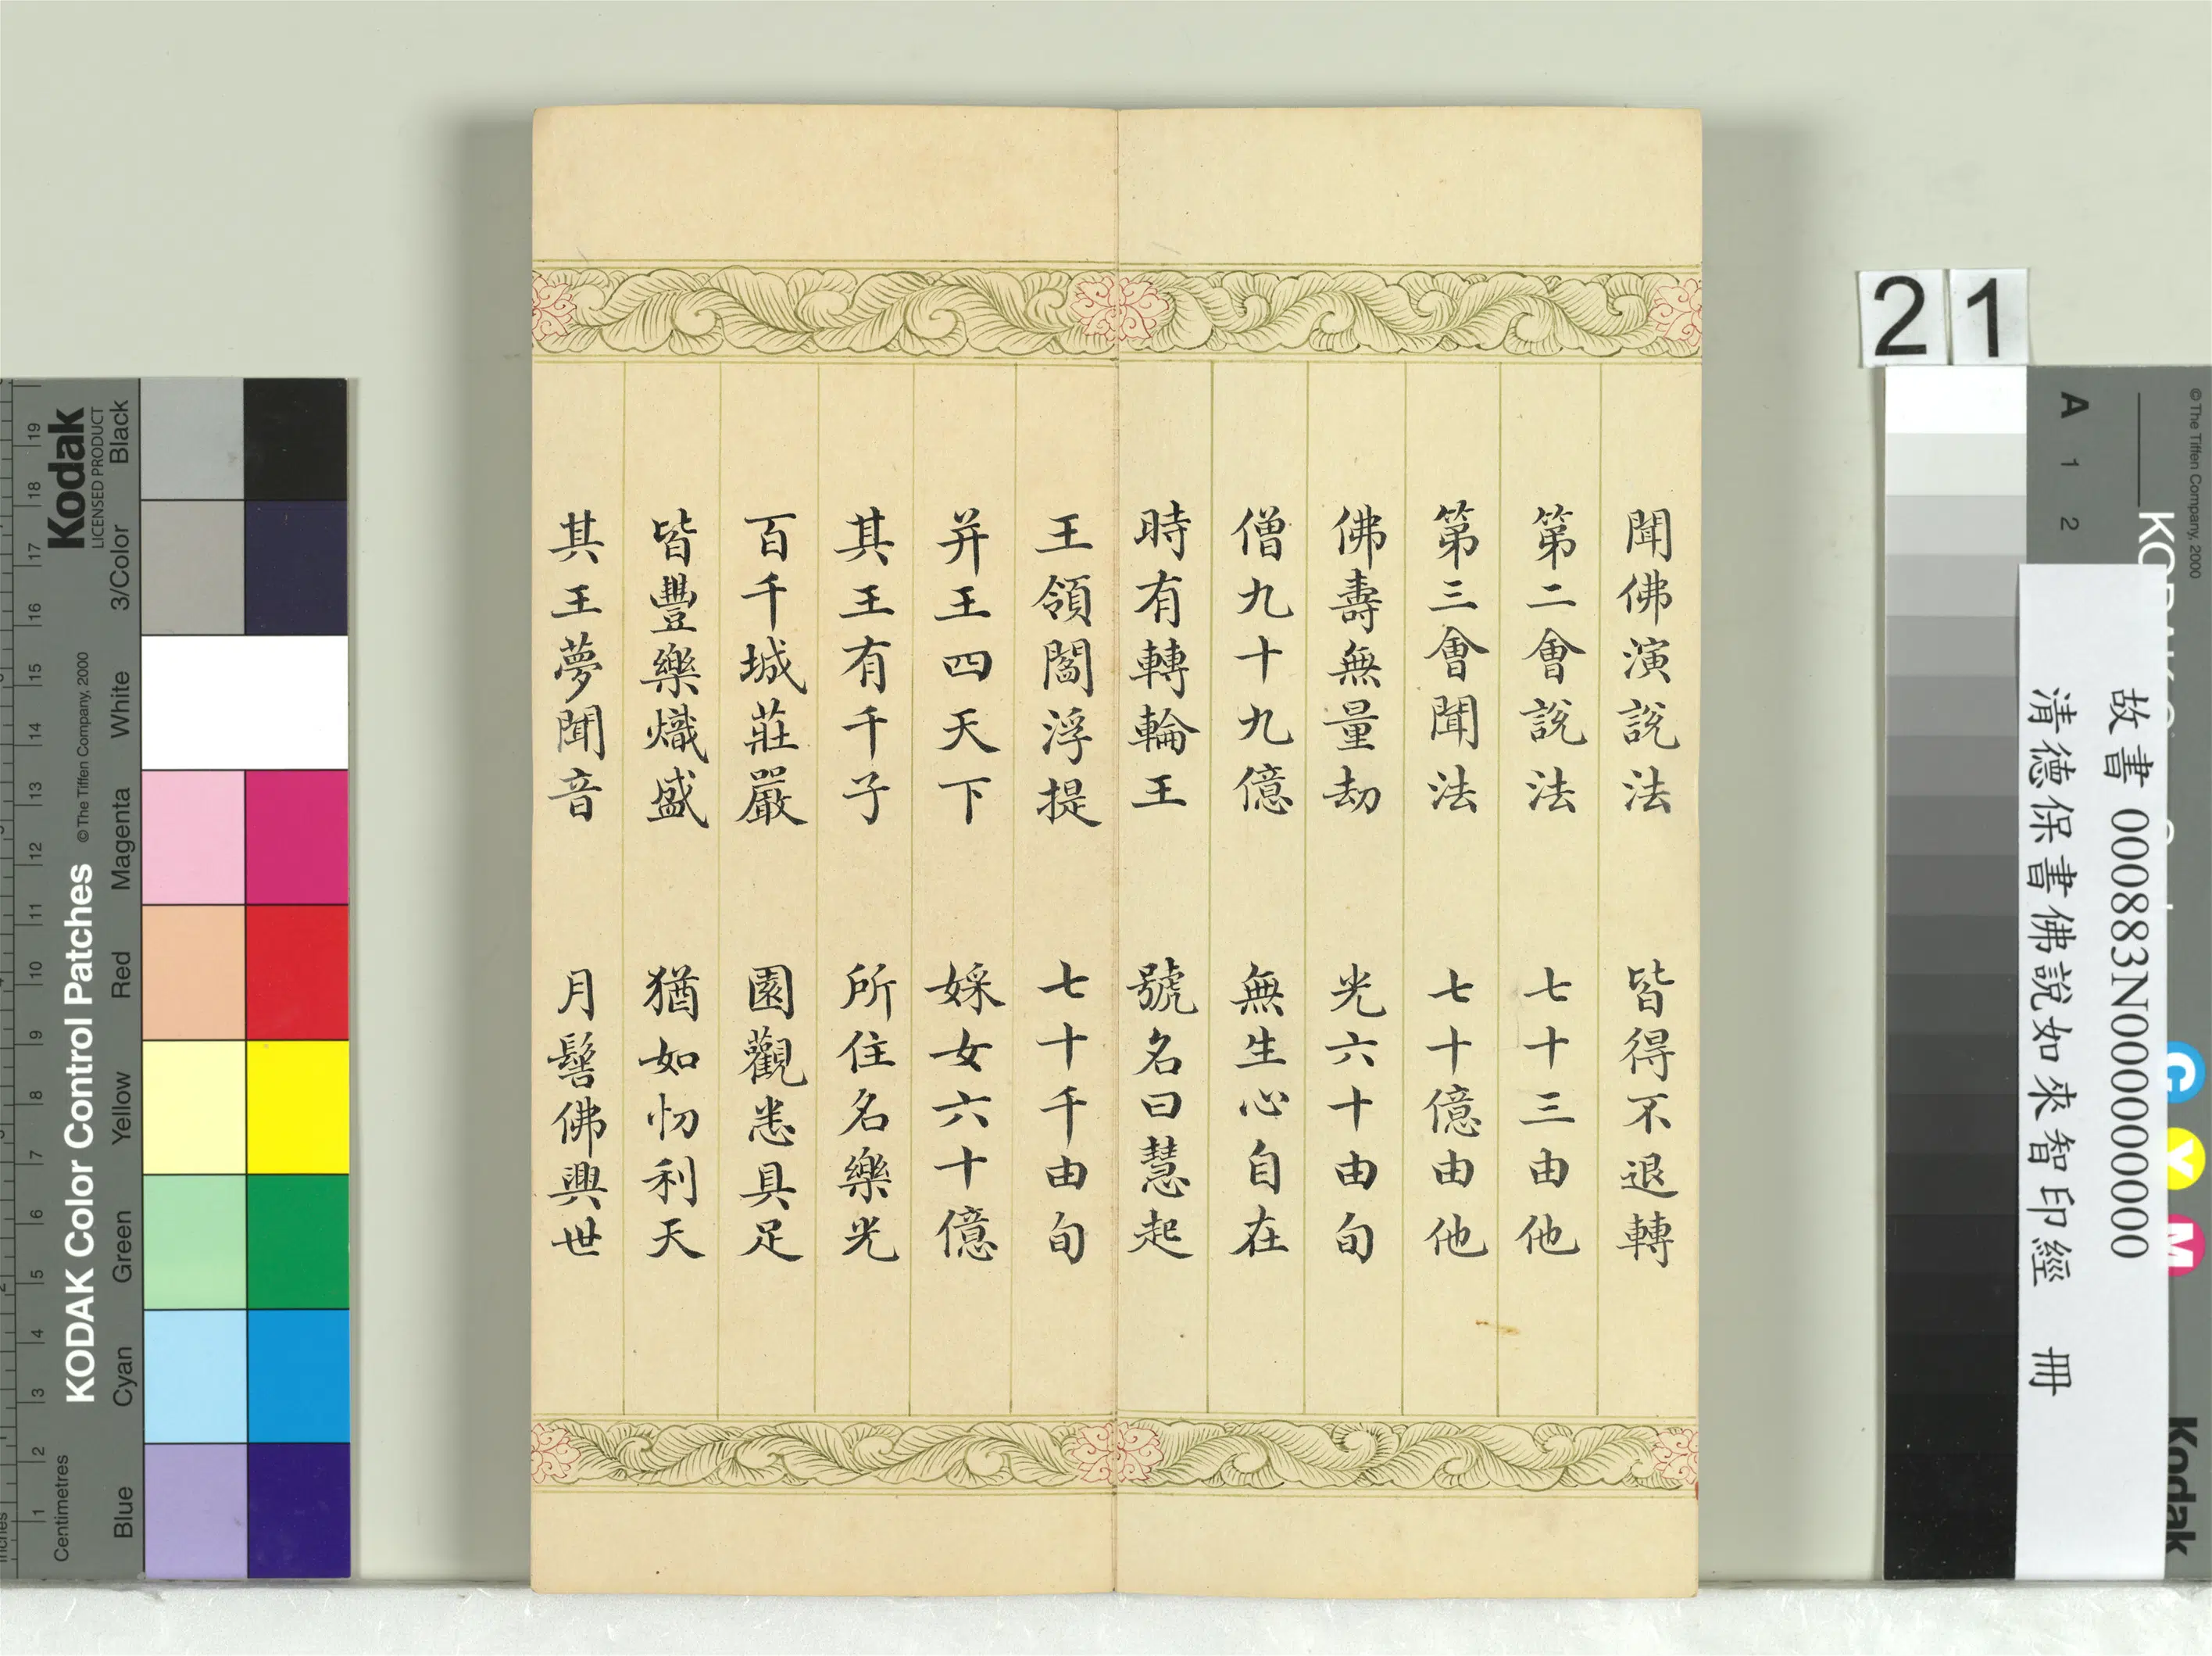 聞佛演說法　皆得不退轉
第二會說法　七十三由他
第三會聞法　七十億由他
佛壽無量劫　光六十由旬
僧九十九億　無生心自在
時有轉輪王　號名曰慧起
王領閻浮提　七十千由旬
并王四天下　婇女六十億
其王有千子　所住名樂光
百千城莊嚴　園觀悉具足
皆豐樂熾盛　猶如忉利天
其王夢聞音　月髻佛興世
21
故書 000883N000000000
清德保書佛說如來智印經　冊
KODAK Color Control Patches
© The Tiffen Company, 2000
Kodak
LICENSED PRODUCT
Centimetres
1 2 3 4 5 6 7 8 9 10 11 12 13 14 15 16 17 18 19
Blue Cyan Green Yellow Red Magenta White 3/Color Black
© The Tiffen Company, 2000
A 1 2
C Y M
Kodak